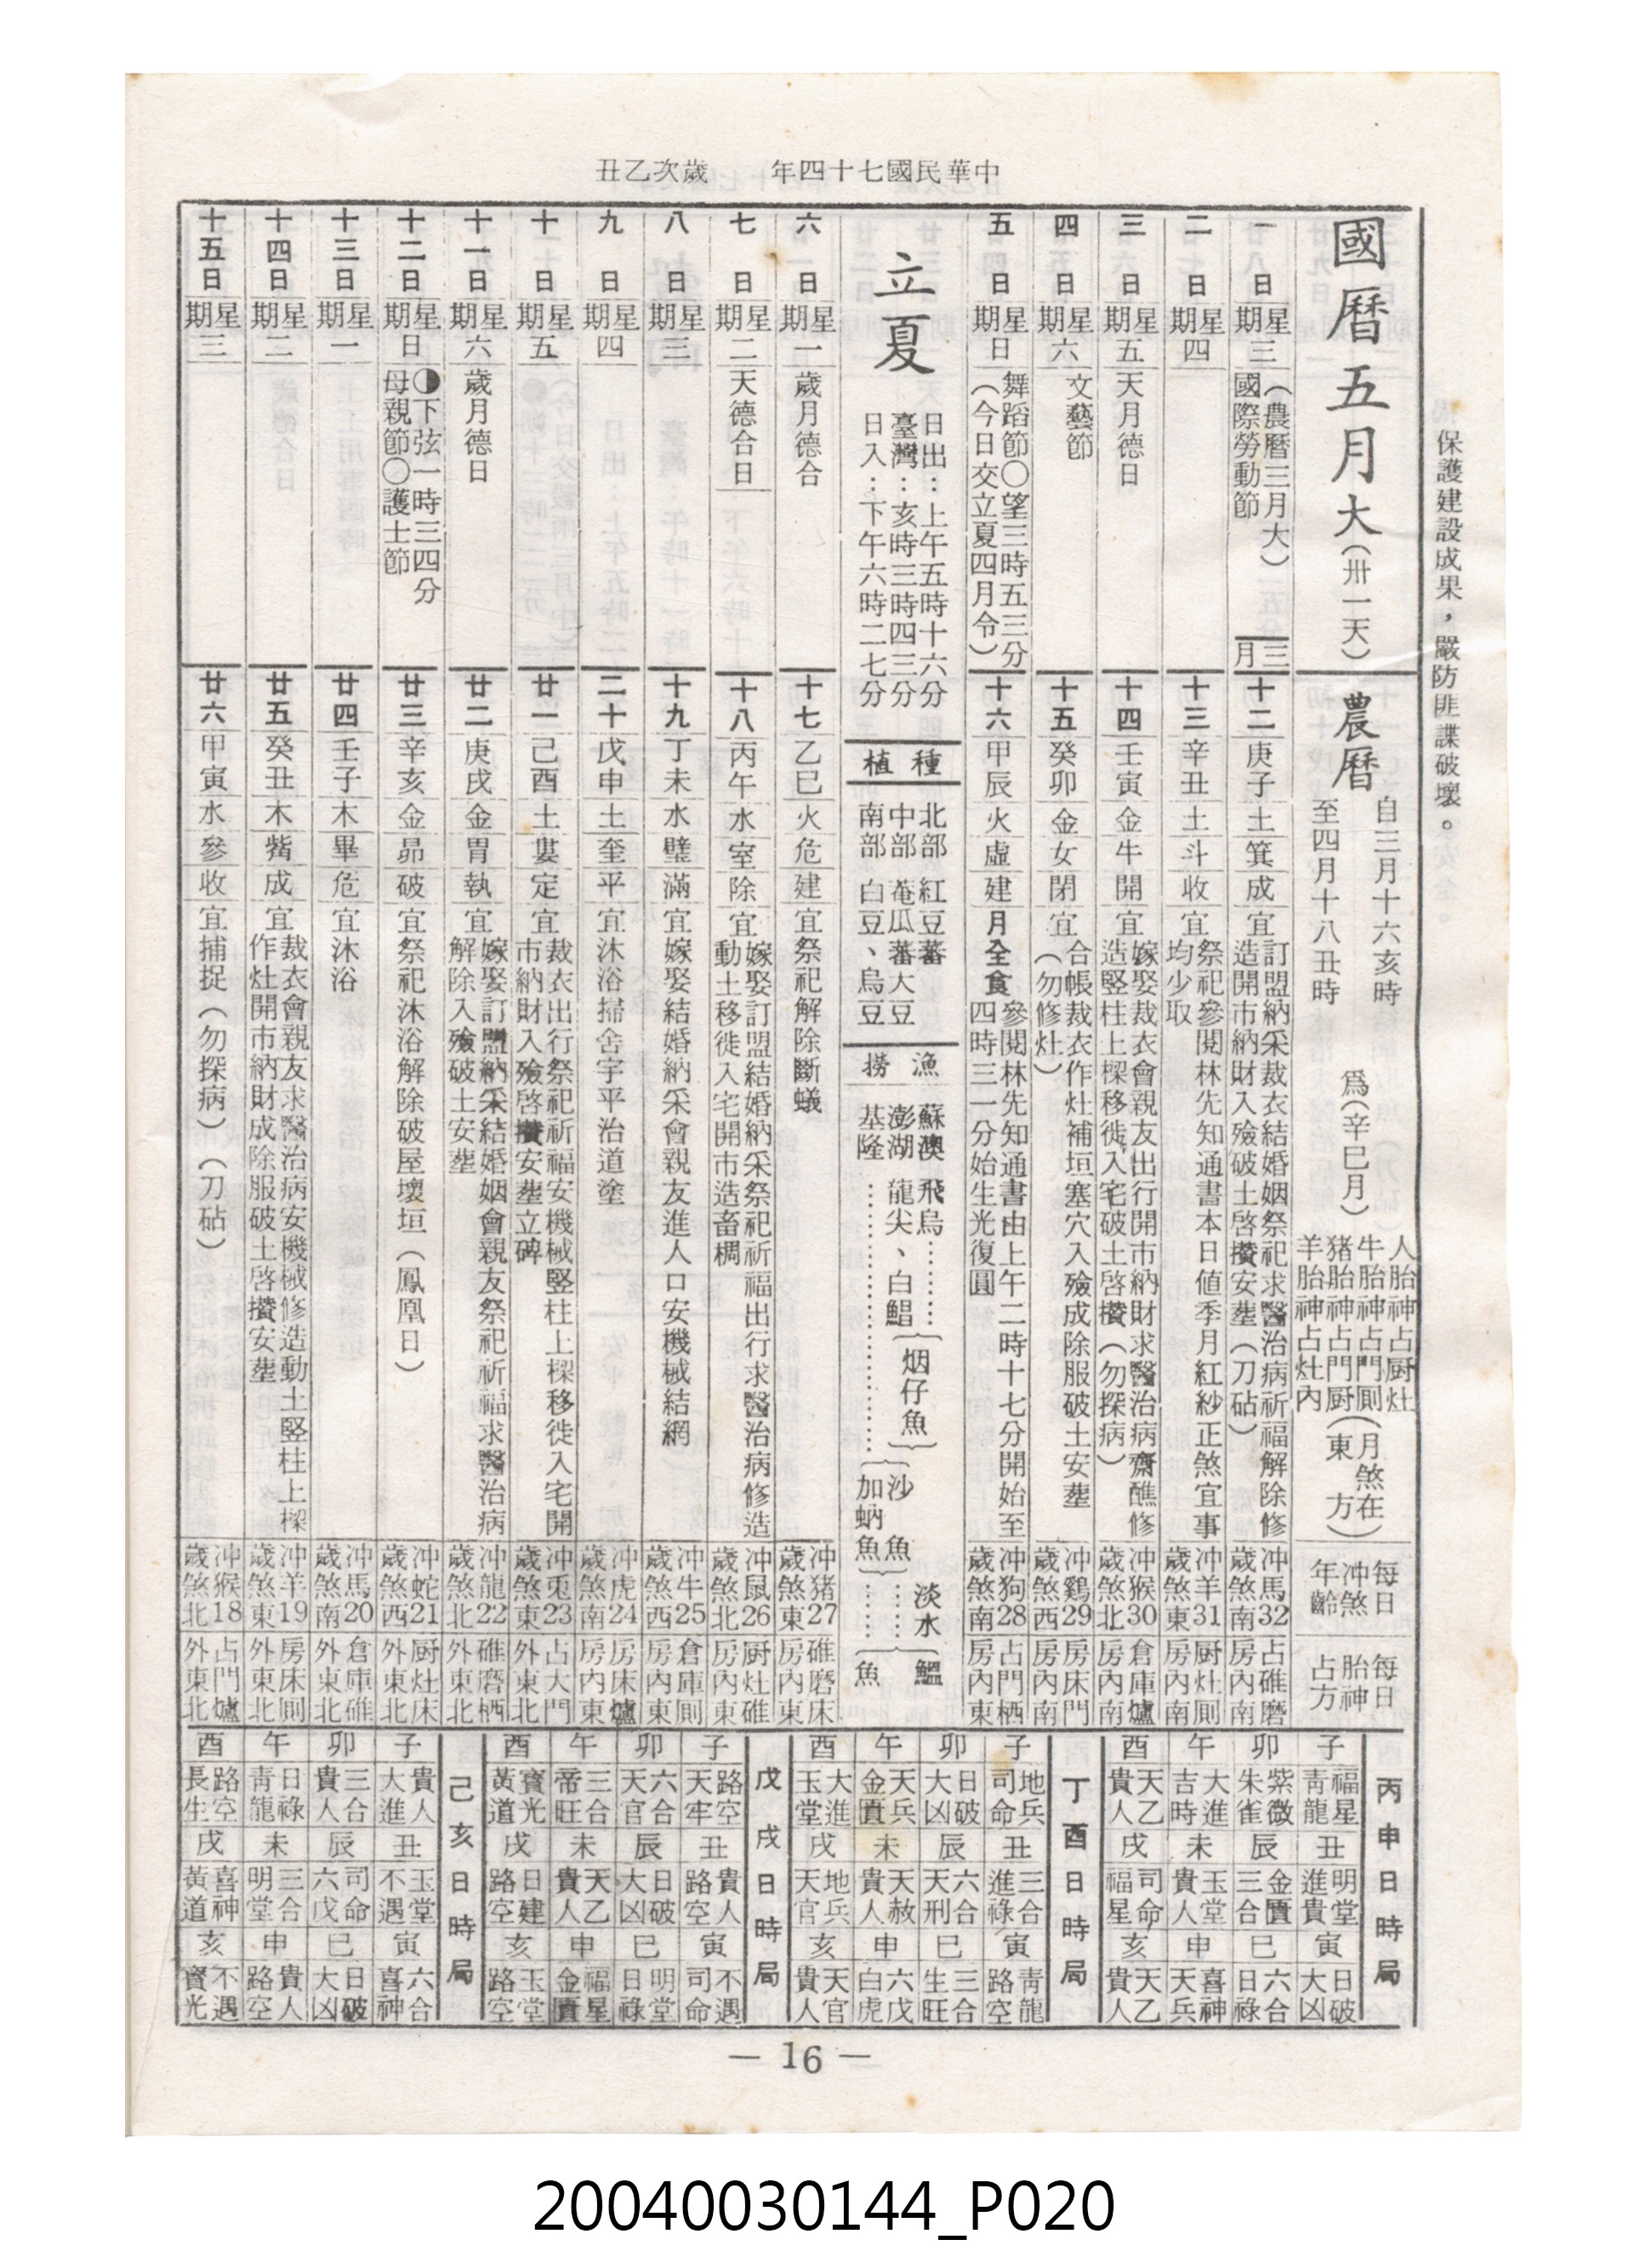 中華民國七十四年 歲次乙丑
保護建設成果，嚴防匪諜破壞。
國曆五月大（卅一天）
農曆
自三月十六亥時
至四月十八丑時
爲（辛巳月）
人胎神占厨灶
牛胎神占門厠
猪胎神占門厨
羊胎神占灶內
（月煞在東方）
每日冲煞年齡
每日胎神占方
一日 星期三 （農曆三月大） 國際勞動節 三月十二 庚子 土 箕 成 宜 訂盟納采裁衣結婚姻祭祀求醫治病祈福解除修造開市納財入殮破土啓攢安塟（刀砧） 冲馬32歲煞南 占碓磨房內南
二日 星期四 十三 辛丑 土 斗 收 宜 祭祀參閱林先知通書本日値季月紅紗正煞宜事均少取 冲羊31歲煞東 厨灶厠房內南
三日 星期五 天月德日 十四 壬寅 金 牛 開 宜 嫁娶裁衣會親友出行開市納財求醫治病齋醮修造竪柱上樑移徙入宅破土啓攢（勿探病） 冲猴30歲煞北 倉庫爐房內南
四日 星期六 文藝節 十五 癸卯 金 女 閉 宜 合帳裁衣作灶補垣塞穴入殮成除服破土安塟（勿修灶） 冲鷄29歲煞西 房床門房內南
五日 星期日 舞蹈節〇望三時五三分（今日交立夏四月令） 十六 甲辰 火 虛 建 月全食 參閱林先知通書由上午二時十七分開始至四時三一分始生光復圓 冲狗28歲煞南 占門栖房內東
立夏
日出：上午五時十六分
臺灣：亥時三時四三分
日入：下午六時二七分
種植
北部 紅豆蕃
中部 菴瓜蕃大豆
南部 白豆、烏豆
漁撈
蘇澳 飛烏………
澎湖 龍尖、白鯧
基隆…………………
（烟仔魚）
沙魚……
（加蚋魚）……
淡水
（鰮魚
六日 星期一 歲月德合 十七 乙巳 火 危 建 宜 祭祀解除斷蟻 冲猪27歲煞東 碓磨床房內東
七日 星期二 天德合日 十八 丙午 水 室 除 宜 嫁娶訂盟結婚納采祭祀祈福出行求醫治病修造動土移徙入宅開市造畜椆 冲鼠26歲煞北 厨灶碓房內東
八日 星期三 十九 丁未 水 璧 滿 宜 嫁娶結婚納采會親友進人口安機械結網 冲牛25歲煞西 倉庫厠房內東
九日 星期四 二十 戊申 土 奎 平 宜 沐浴掃舍宇平治道塗 冲虎24歲煞南 房床爐房內東
十日 星期五 廿一 己酉 土 婁 定 宜 裁衣出行祭祀祈福安機械竪柱上樑移徙入宅開市納財入殮啓攢安塟立碑 冲兎23歲煞東 占大門外東北
十一日 星期六 歲月德日 廿二 庚戌 金 胃 執 宜 嫁娶訂盟納采結婚姻會親友祭祀祈福求醫治病解除入殮破土安塟 冲龍22歲煞北 碓磨栖外東北
十二日 星期日 ◑下弦一時三四分 母親節〇護士節 廿三 辛亥 金 昴 破 宜 祭祀沐浴解除破屋壞垣（鳳凰日） 冲蛇21歲煞西 厨灶床外東北
十三日 星期一 廿四 壬子 木 畢 危 宜 沐浴 冲馬20歲煞南 倉庫碓外東北
十四日 星期二 廿五 癸丑 木 觜 成 宜 裁衣會親友求醫治病安機械修造動土竪柱上樑作灶開市納財成除服破土啓攢安塟 冲羊19歲煞東 房床厠外東北
十五日 星期三 廿六 甲寅 水 參 收 宜 捕捉（勿探病）（刀砧） 冲猴18歲煞北 占門爐外東北
丙申日時局
子 福星青龍 丑 明堂進貴 寅 日破大凶
卯 紫微朱雀 辰 金匱三合 巳 六合日祿
午 大進吉時 未 玉堂貴人 申 喜神天兵
酉 天乙貴人 戌 司命福星 亥 天乙貴人
丁酉日時局
子 地兵司命 丑 三合進祿 寅 青龍路空
卯 日破大凶 辰 六合天刑 巳 三合生旺
午 天兵金匱 未 天赦貴人 申 六戊白虎
酉 大進玉堂 戌 地兵天官 亥 天官貴人
戊戌日時局
子 路空天牢 丑 貴人路空 寅 不遇司命
卯 六合天官 辰 日破大凶 巳 明堂日祿
午 三合帝旺 未 天乙貴人 申 福星金匱
酉 寶光黃道 戌 日建路空 亥 玉堂路空
己亥日時局
子 貴人大進 丑 玉堂不遇 寅 六合喜神
卯 三合貴人 辰 司命六戊 巳 日破大凶
午 日祿青龍 未 三合明堂 申 貴人路空
酉 路空長生 戌 喜神黃道 亥 不遇寶光
— 16 —
20040030144_P020